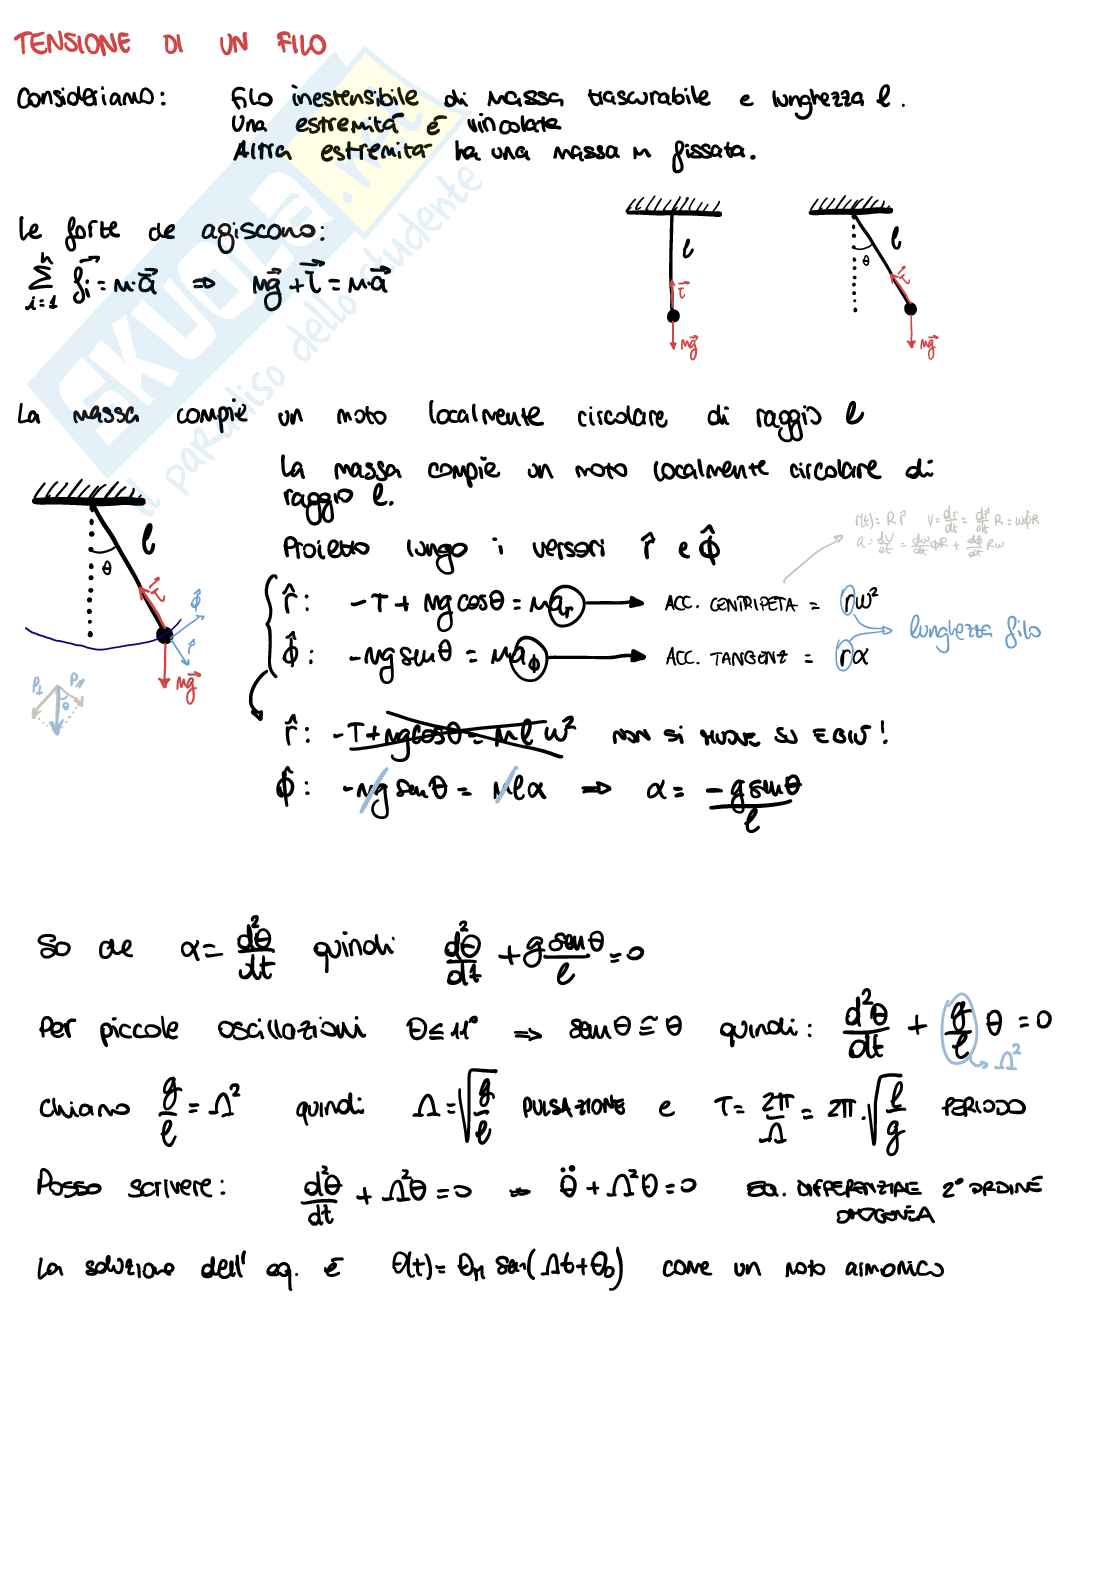 TENSIONE DI UN FILO
Consideriamo: filo inestensibile di massa trascurabile e lunghezza l.
Una estremità è vincolata
Altra estremità ha una massa m fissata.
Le forze che agiscono:
\sum_{i=1}^{n} \vec{f_i} = m·\vec{a} ⇒ m\vec{g} + \vec{τ} = m·\vec{a}
l \vec{τ} m\vec{g}
θ l \vec{τ} m\vec{g}
La massa compie un moto localmente circolare di raggio l
La massa compie un moto localmente circolare di
raggio l.
r(t) = R \hat{r} v = dr/dt = d\hat{r}/dt R = ω\hat{ϕ}R
a = dv/dt = dω/dt ϕR + dϕ/dt Rω
Proietto lungo i versori \hat{r} e \hat{ϕ}
l θ \vec{τ} \hat{ϕ} \hat{r} m\vec{g}
P⊥ P// θ
\hat{r}: -T + mg cosθ = m a_r → ACC. CENTRIPETA = rω²
lunghezza filo
\hat{ϕ}: -mg senθ = m a_ϕ → ACC. TANGENZ = rα
\hat{r}: -T + mg cosθ = m l ω² non si muove su essi!
\hat{ϕ}: -mg senθ = m l α ⇒ α = -g senθ / l
So che α = d²θ/dt quindi d²θ/dt + g senθ/l = 0
Per piccole oscillazioni θ ≤ 11° ⇒ senθ ≃ θ quindi: d²θ/dt + g/l θ = 0
→ Ω²
Chiamo g/l = Ω² quindi Ω = √(g/l) PULSAZIONE e T = 2π/Ω = 2π·√(l/g) PERIODO
Posso scrivere: d²θ/dt + Ω²θ = 0 → \ddot{θ} + Ω²θ = 0 EQ. DIFFERENZIALE 2° ORDINE
OMOGENEA
La soluzione dell' eq. è θ(t) = θ_M sen(Ωt + θ_0) come un moto armonico
SKUOLA.net
il paradiso dello studente